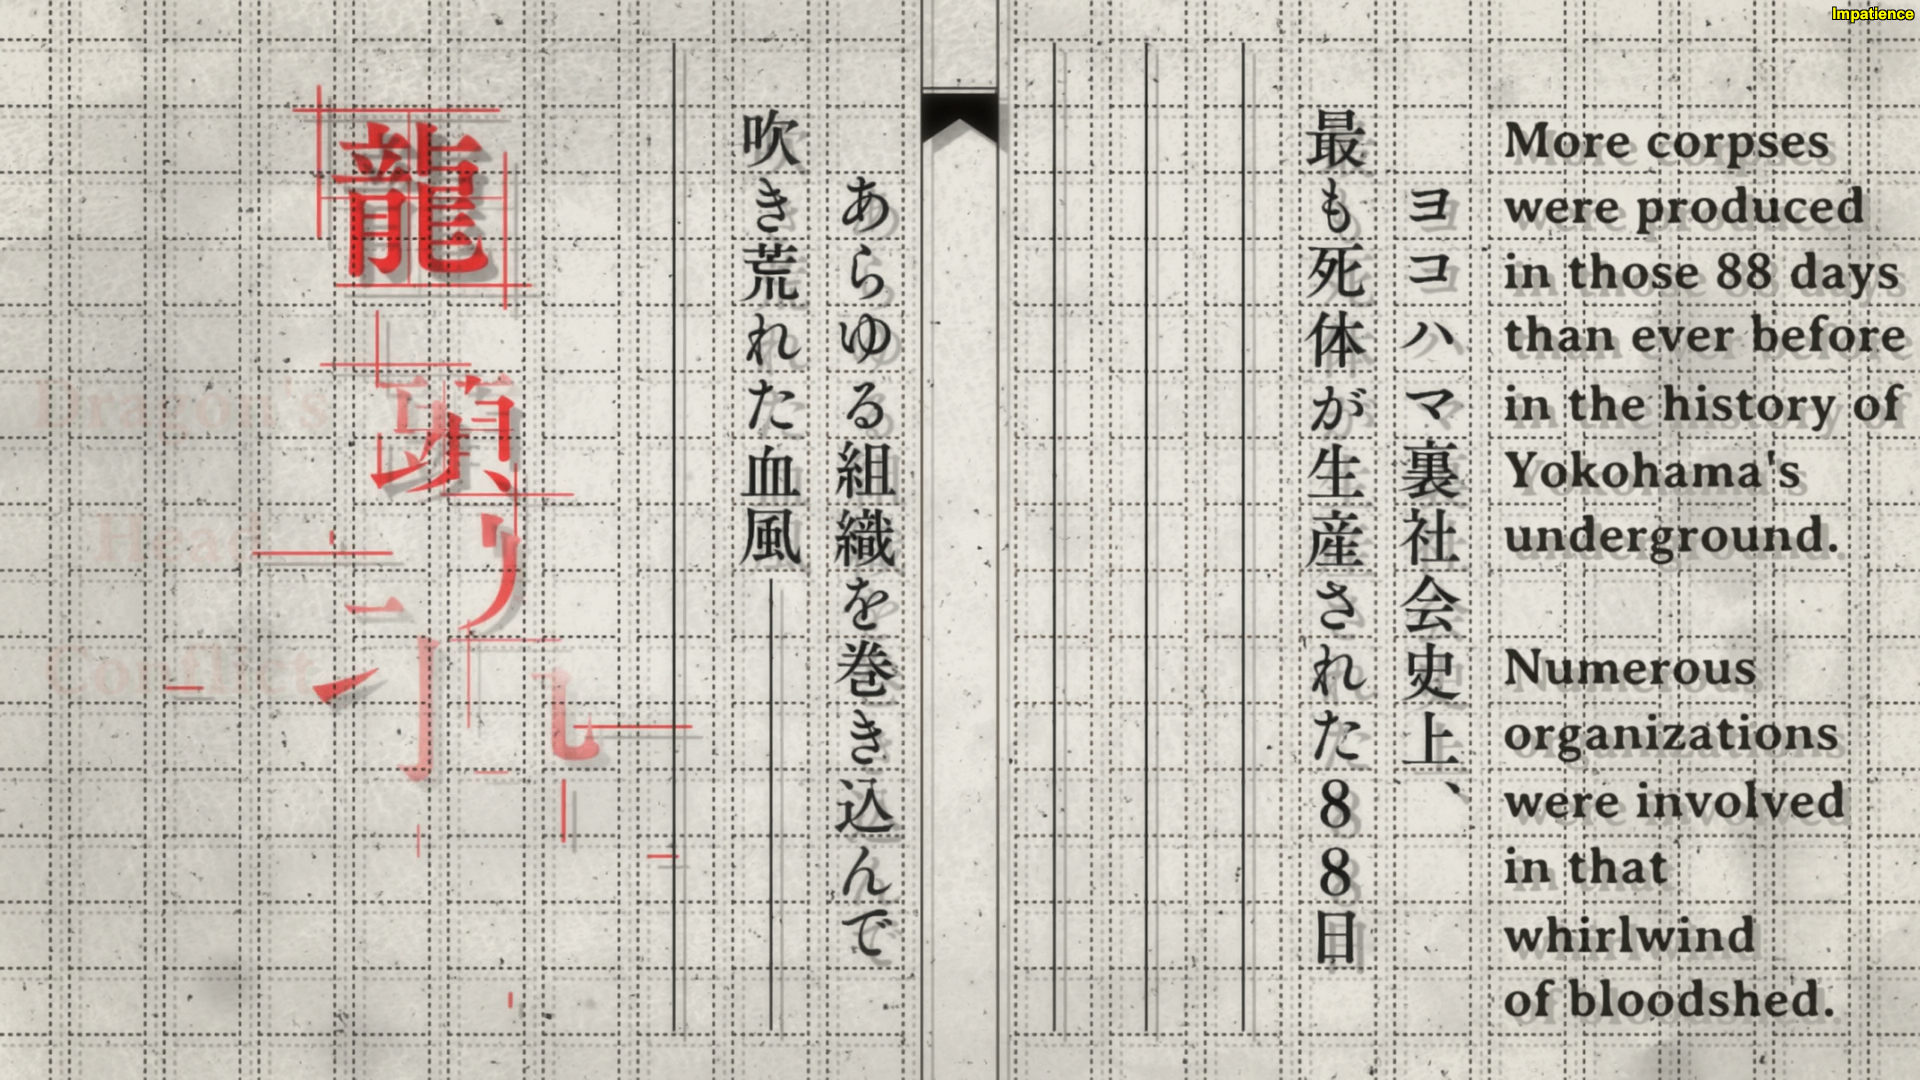 Impatience
More corpses
were produced
in those 88 days
than ever before
in the history of
Yokohama's
underground.
Numerous
organizations
were involved
in that
whirlwind
of bloodshed.
ヨコハマ裏社会史上、
最も死体が生産された88日
あらゆる組織を巻き込んで
吹き荒れた血風―
龍頭
Dragon's
Head
Conflict